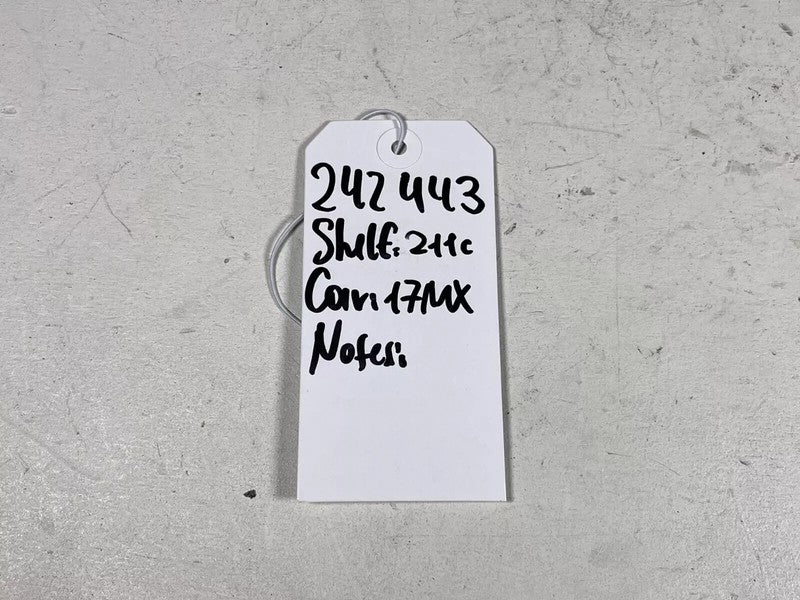 242 443
Shelf: 211c
Car: 17MX
Notes: